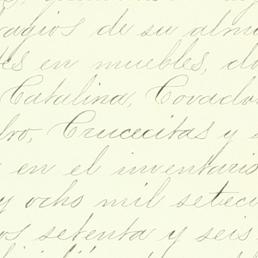 de su alm
en muebles, do
Catalina, Covadon
Crucecitas y
en el inventario
y ocho mil setecie
setenta y seis